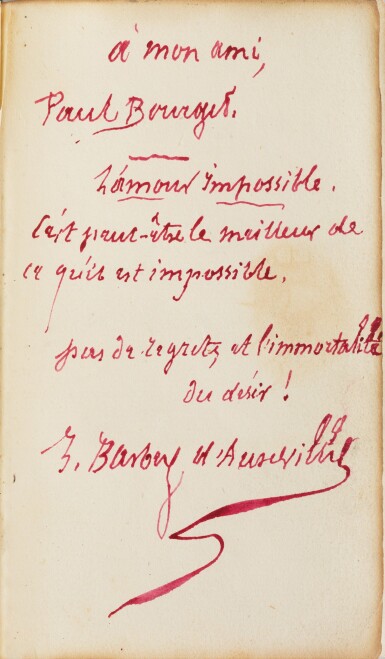 à mon ami,
Paul Bourget.
L'amour impossible.
C'est peut-être le meilleur de
ce qu'il est impossible.
pas de regrets, et l'immortalité
du désir !
J. Barbey d'Aurevilly